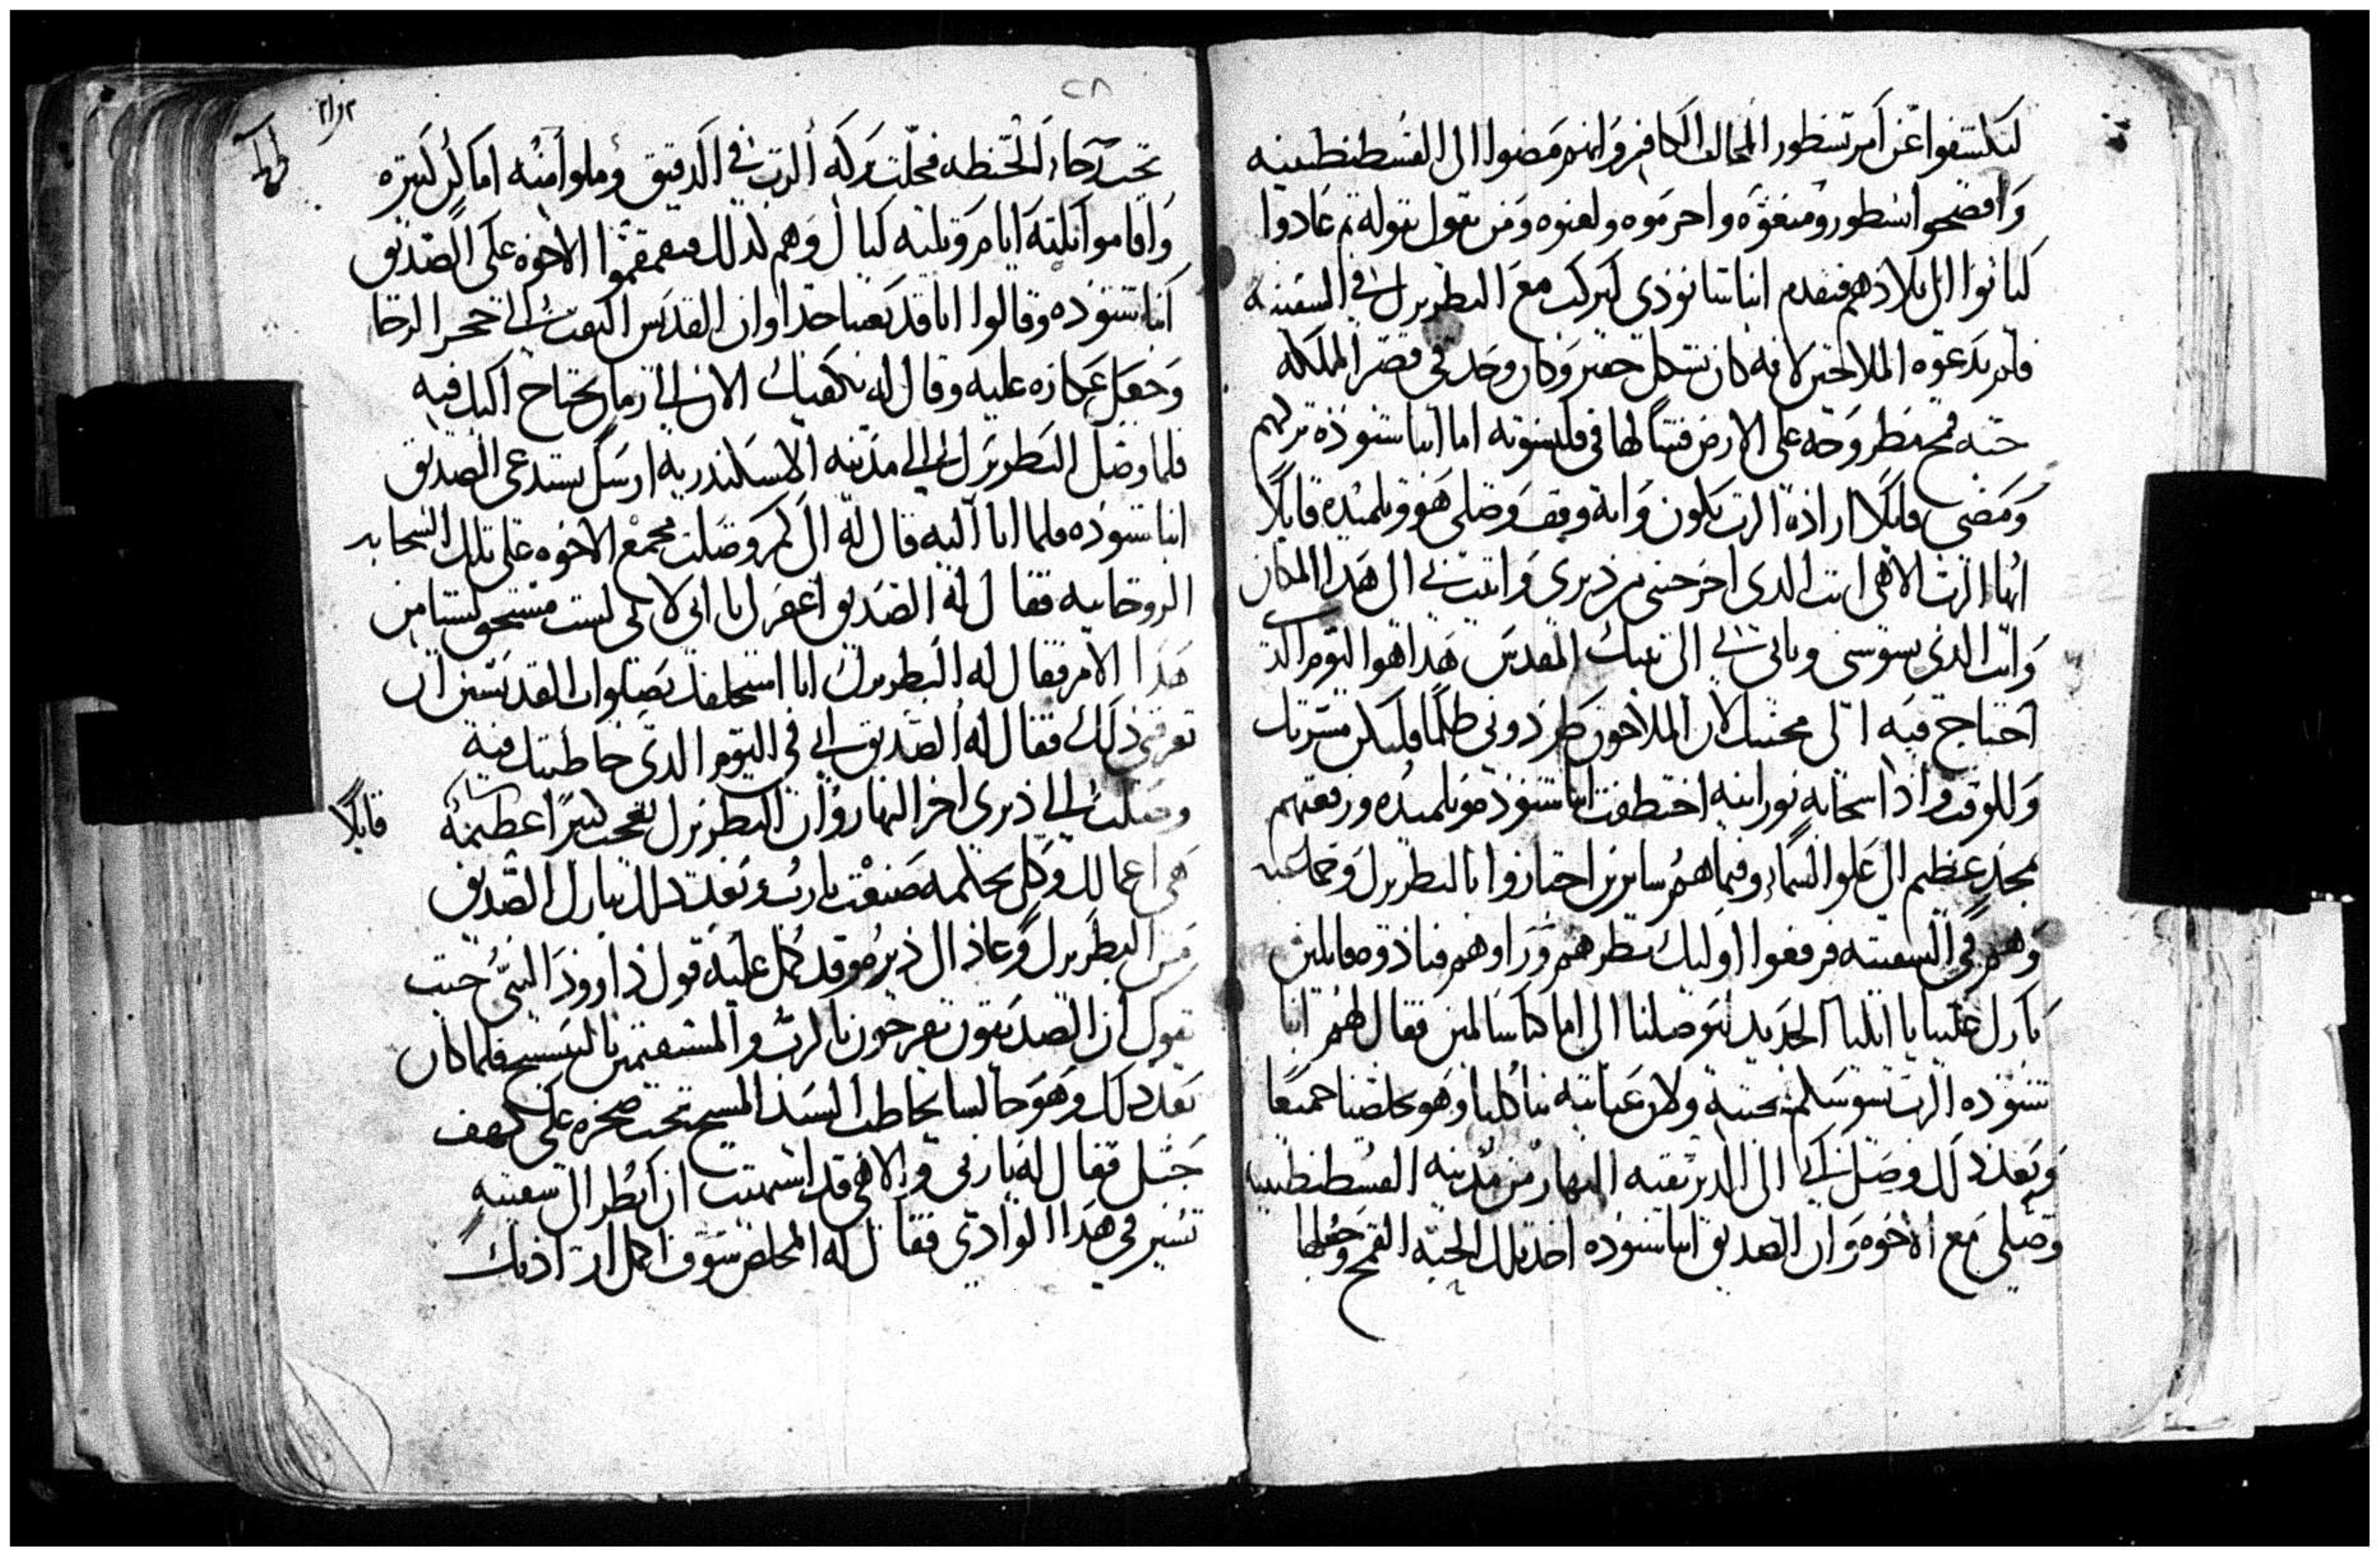 ليكشفوا عن امر نسطور المخالف الكافر وانهم مضوا الى القسطنطينيه
وافضحوا نسطور ومنعوه واحرموه ولعنوه ومن يقول بقوله ثم عادوا
لياتوا الى بلادهم فتقدم انبا شانودى ليركب مع البطريرك في السفينه
فلم يدعوه الملاحين لانه كان بشكل حقير وكان وجد في قصر المملكه
حبه قمح مطروحه على الارض فشالها في قلنسوته اما انبا شنوده تركهم
ومضى قايلا ارادة الرب تكون وانه وقف وصلى هو وتلميده قايلا
ايها الرب الالاهى انت الدى اخرجتنى من ديرى واتيت بى الى هدا المكان
وانت الدى تسوسنى وتاتى بى الى بيتك المقدس هدا هو اليوم الدى
احتاج فيه الى محبتك لان الملاحون طردونى ظلما فليكن مسرتك
وللوقت وادا سحابه نورانيه اختطفت انبا شنوده وتلميده ورفعتهم
بمجد عظيم الى علو السماء وفيما هم سايرين اجتازوا بالبطريرك وجماعته
وهم في السفينه فرفعوا اوليك نظرهم وراوهم فنادوه قايلين
بارك علينا يا ايليا الجديد لتوصلنا الى اماكنا سالمين فقال لهم انبا
شنوده الرب يسوسكم بمحبته ولان عنايته بنا كلنا وهو يخلصنا جميعا
وبعد دلك وصل الى الدير بقية النهار من مدينه القسطنطينيه
وصلى مع الاخوه وان الصديق انبا شنوده اخد تلك الحبه القمح وجعلها
٢٨
تحت رحاء الحنطه فحلت بركه الرب في الدقيق وملوا منه اماكن كثيره
واقاموا ثلثه ايام وثلثه ليال وهم لدلك فتقمقموا الاخوه على الصديق
انبا شنوده وقالوا انا قد تعبنا جدا وان القديس التفت الى حجر الرحا
وجعل عكازه عليه وقال له يكفيك الان الى زمان يحتاج اليك فيه
فلما وصل البطريرك الى مدينه الاسكندريه ارسل يستدعى الصديق
انبا شنوده فلما اتا اليه قال له الى كم وصلت مجمع الاخوه على تلك السحابه
الروحانيه فقال له الصديق اغفر لى يا ابى لانى لست مستحق لشيا من
هدا الامر فقال له البطريرك انا استحلفك بصلوات القديسين ان
تعرفنى دلك فقال له الصديق انى في اليوم الدى خاطبتك فيه
وصلت الى ديرى اخر النهار وان البطريرك تعجب كثيرا عظيمه قايلا
هى اعمالك وكل بحكمه صنعت يارب وبعد دلك تبارك الصديق
من البطريرك وعاد الى ديره وقد كمل عليه قول داوود النبى حيث
يقول ان الصديقون يفرحون بالرب والمستقيمين بالتسبيح فلما كان
بعد دلك وهو جالسا يخاطب السيد المسيح تحت صخره على كهف
جبل فقال له ياربى والاهى قد اشتهيت ان انظر الى سفينه
تسير في هدا الوادى فقال له المخلص سوف اكمل ارادتك